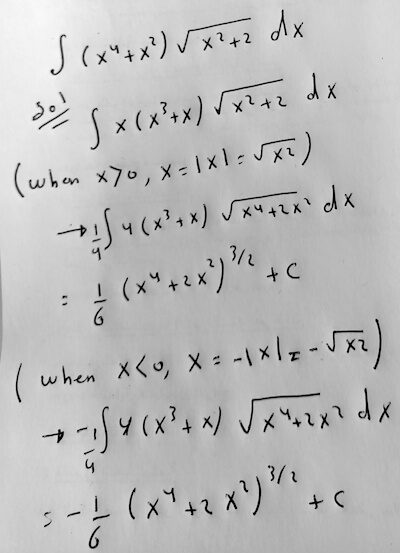 ∫ (x⁴+x²) √(x²+2) dx
Sol ∫ x (x³+x) √(x²+2) dx
(when x>0, x = |x| = √x²)
→ 1/4 ∫ 4 (x³+x) √(x⁴+2x²) dx
= 1/6 (x⁴+2x²)^3/2 + C
(when x<0, x = -|x| = -√x²)
→ -1/4 ∫ 4 (x³+x) √(x⁴+2x²) dx
= -1/6 (x⁴+2x²)^3/2 + C